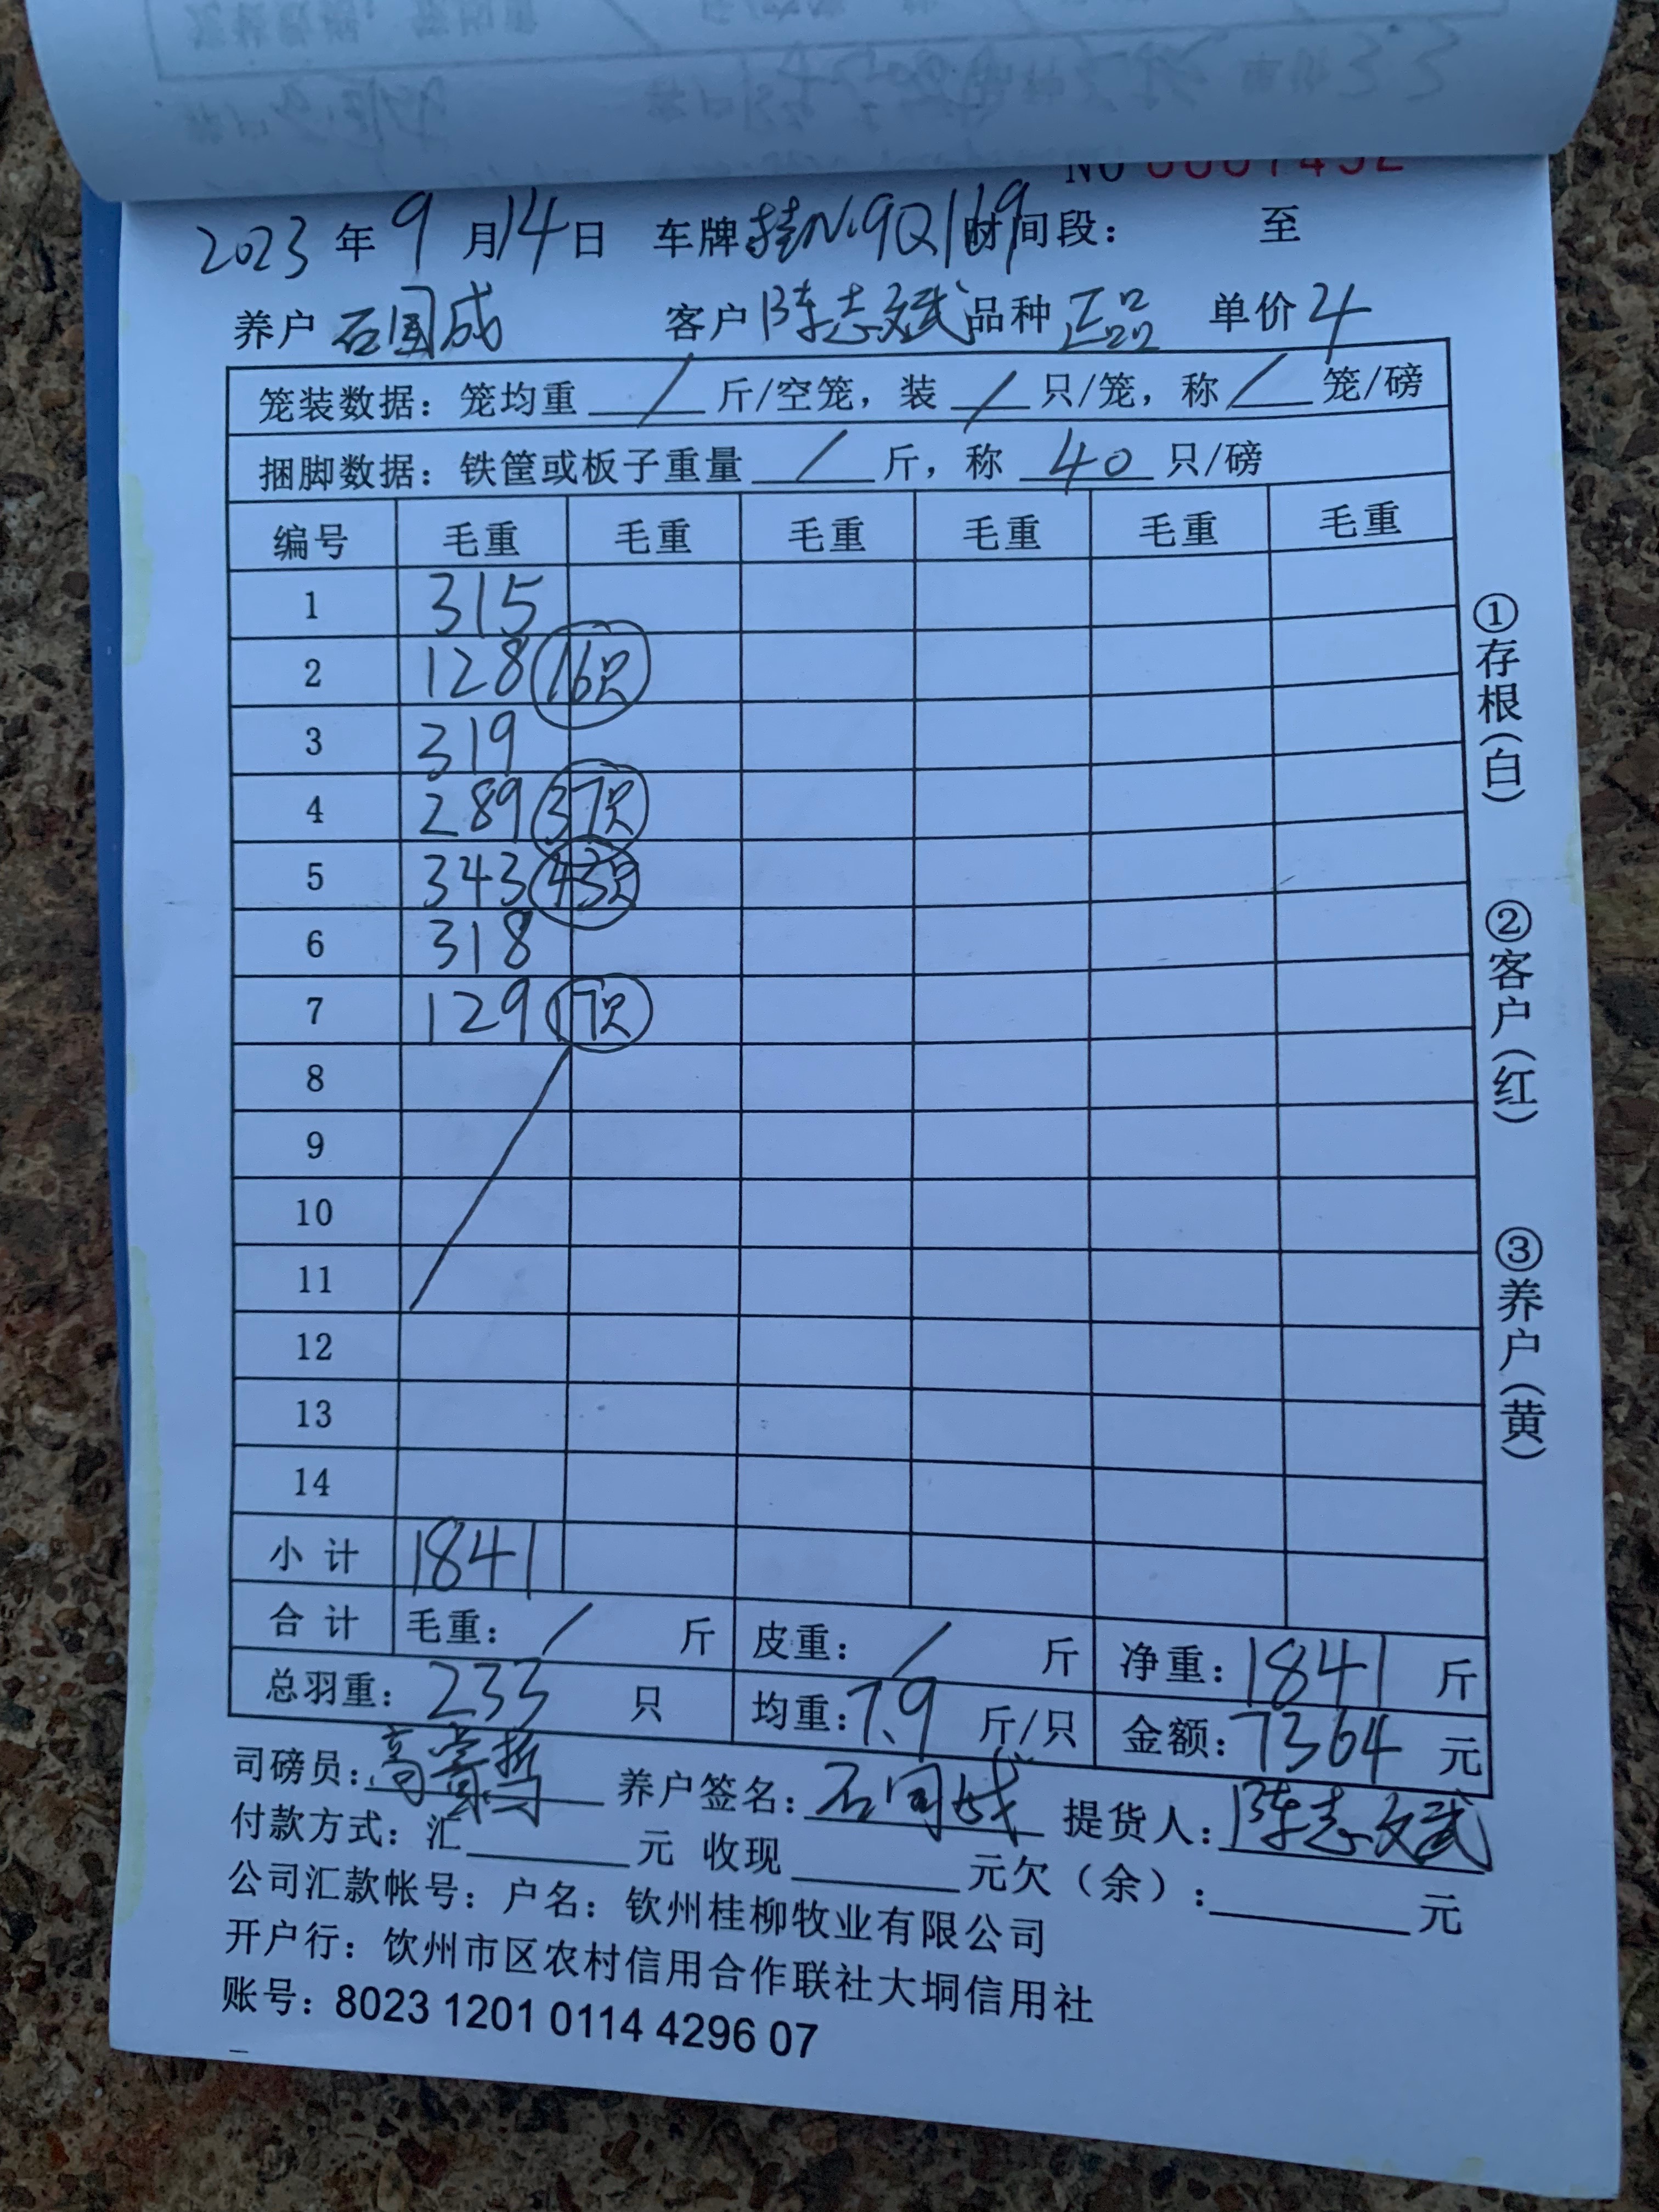 2023 年 9 月 14 日 车牌 桂N·9Q119 时间段： 至
养户 石国成 客户 陈志斌 品种 正品 单价 4
笼装数据：笼均重 / 斤/空笼，装 / 只/笼，称 / 笼/磅
捆脚数据：铁筐或板子重量 / 斤，称 40 只/磅
编号 毛重 毛重 毛重 毛重 毛重 毛重
1 315
2 128 16只
3 319
4 289 37只
5 343 43只
6 318
7 129 17只
8
9
10
11
12
13
14
小计 1841
合计 毛重： / 斤 皮重： / 斤 净重：1841 斤
总羽重：233 只 均重：7.9 斤/只 金额：7364 元
司磅员：高 养户签名：石国成 提货人：陈志斌
付款方式：汇 元 收现 元欠（余）： 元
公司汇款帐号：户名：钦州桂柳牧业有限公司
开户行：饮州市区农村信用合作联社大垌信用社
账号：8023 1201 0114 4296 07
①存根（白）
②客户（红）
③养户（黄）